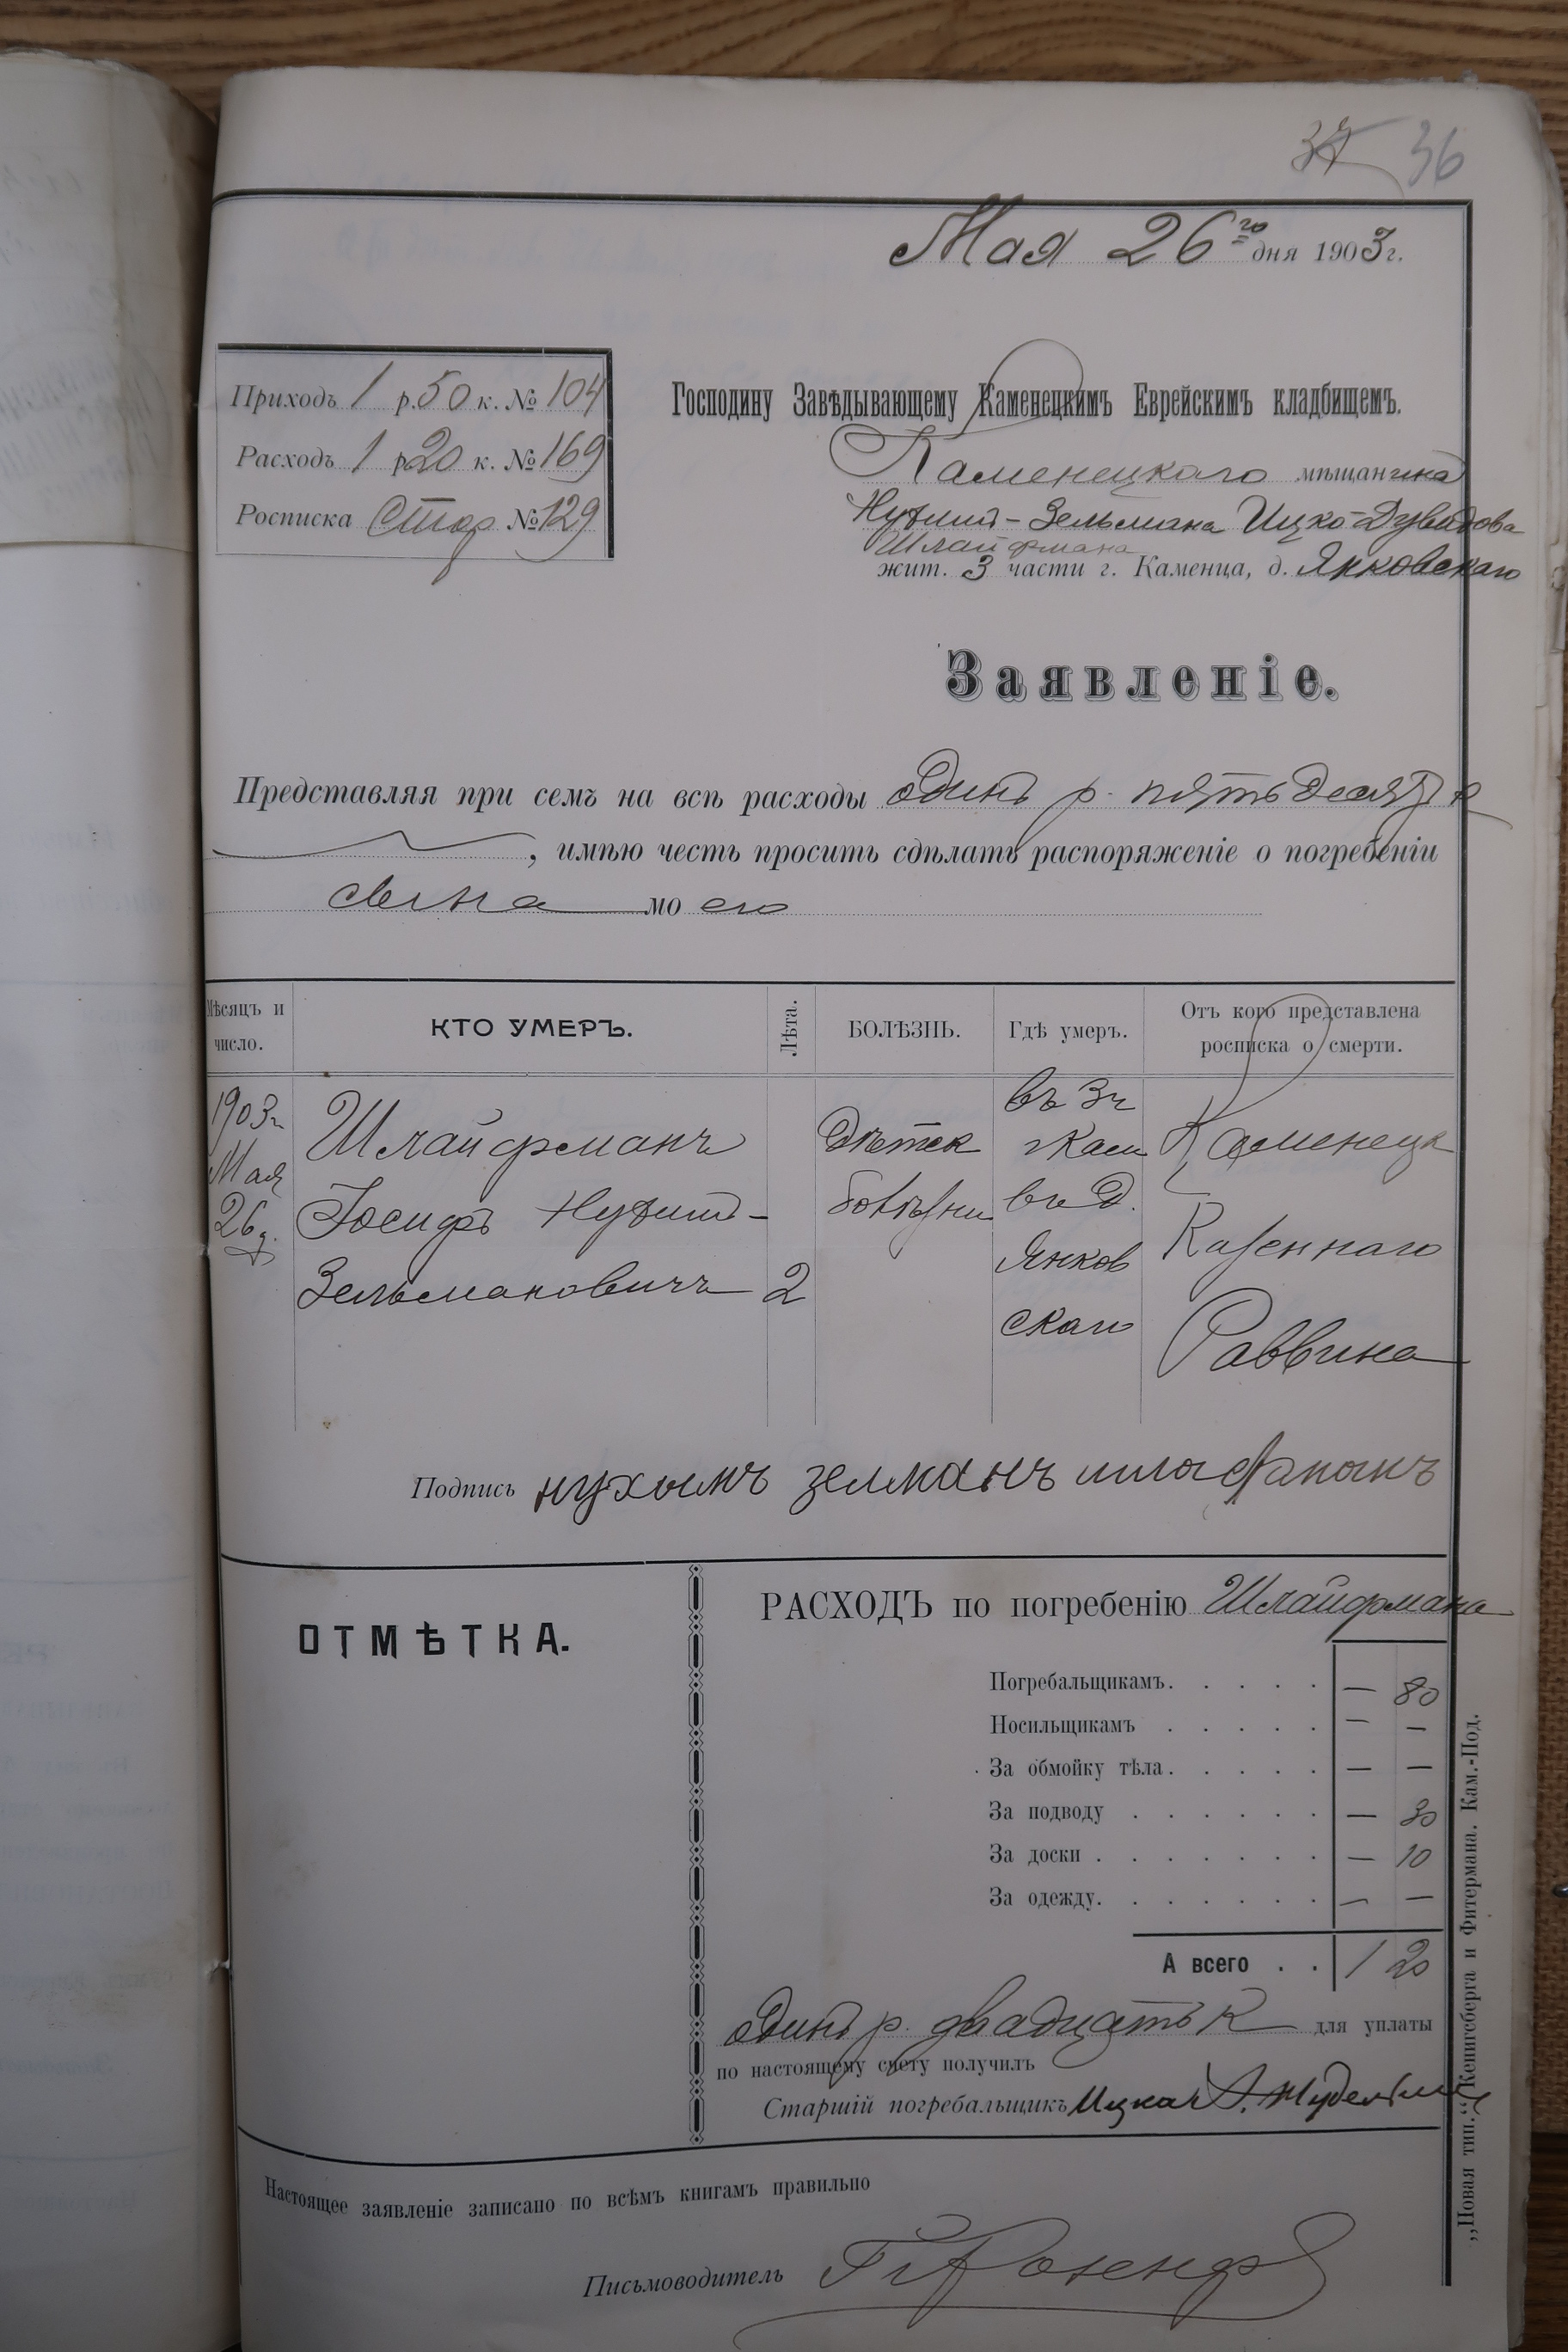 37 36
Мая 26го дня 1903 г.
Приходъ 1 р. 50 к. № 104
Расходъ 1 р. 20 к. № 169
Росписка Стор № 129
Господину Завѣдывающему Каменецкимъ Еврейскимъ кладбищемъ.
Каменецкаго мѣщанина
Нухим-Зельмана Ицко-Дувидова
Шлайфмана
жит. 3 части г. Каменца, д. Янковскаго
Заявленіе.
Представляя при семъ на всѣ расходы одинъ р. пятьдесят к
, имѣю честь просить сдѣлать распоряженіе о погребеніи
сына моего
Мѣсяцъ и число.
КТО УМЕРЪ.
Лѣта.
БОЛѢЗНЬ.
Гдѣ умеръ.
Отъ кого представлена росписка о смерти.
1903 г Мая 26 д.
Шлайфманъ
Іосифъ Нухим-
Зельмановичъ
2
Дѣтск болѣзни
въ 3 ч г Кам въ д. Янковскаго
Каменецк Казеннаго Раввина
Подпись нухымъ зелманъ
ОТМѢТКА.
РАСХОДЪ по погребенію Шлайфмана
Погребальщикамъ. . . . . — 80
Носильщикамъ . . . . . — —
За обмойку тѣла. . . . . — —
За подводу . . . . . . — 30
За доски . . . . . . . — 10
За одежду. . . . . . . — —
А всего . . 1 20
одинъ р. двадцать к для уплаты
по настоящему счету получилъ
Старшій погребальщикъ
Настоящее заявленіе записано по всѣмъ книгамъ правильно
Письмоводитель
„Новая тип.“ Кенигсберга и Фитермана. Кам.-Под.